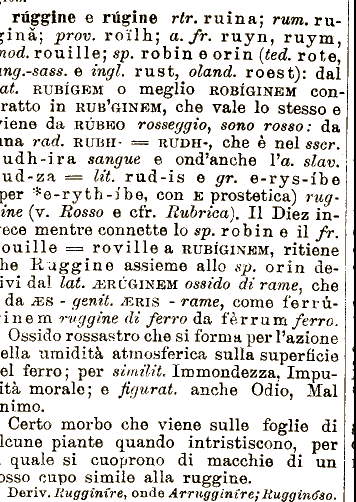 rúggine e rúgine rtr. ruina; rum. ru-
gină; prov. roïlh; a. fr. ruyn, ruym,
mod. rouille; sp. robin e orin (ted. rote,
ang.-sass. e ingl. rust, oland. roest): dal
lat. RUBÍGEM o meglio ROBÍGINEM con-
tratto in RUB'GINEM, che vale lo stesso e
viene da RÚBEO rosseggio, sono rosso: da
una rad. RUBH- = RUDH-, che è nel sscr.
rudh-ira sangue e ond'anche l'a. slav.
rud-za = lit. rud-is e gr. e-rys-íbe
(per *e-ryth-íbe, con E prostetica) rug-
gine (v. Rosso e cfr. Rubrica). Il Diez in-
vece mentre connette lo sp. robin e il fr.
rouille = roville a RUBÍGINEM, ritiene
che Ruggine assieme allo sp. orin de-
rivi dal lat. ÆRÚGINEM ossido di rame, che
è da ÆS - genit. ÆRIS - rame, como ferrú-
ginem ruggine di ferro da fèrrum ferro.
Ossido rossastro che si forma per l'azione
della umidità atmosferica sulla superficie
del ferro; per similit. Immondezza, Impu-
rità morale; e figurat. anche Odio, Mal
animo.
Certo morbo che viene sulle foglie di
alcune piante quando intristiscono, per
la quale si cuoprono di macchie di un
rosso cupo simile alla ruggine.
Deriv. Rugginíre, onde Arrugginíre; Rugginóso.